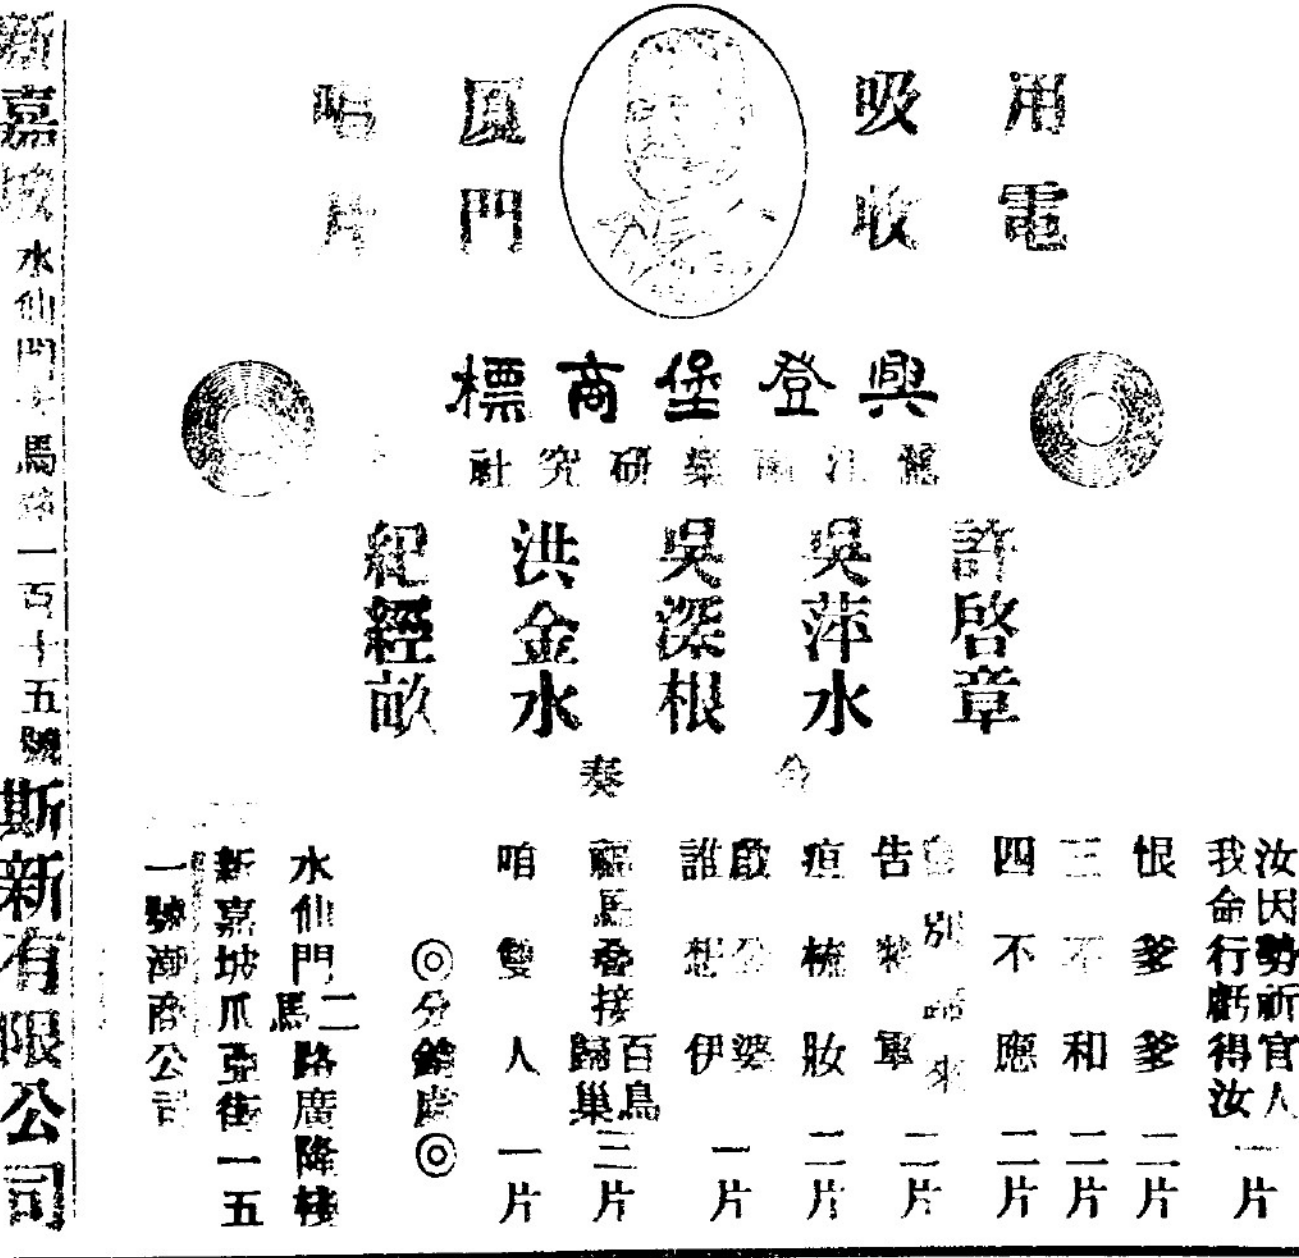 用電
吸收
厦門
唱片
興登堡商標
研究社
許啓章
吳萍水
吳深根
洪金水
紀經畝
合奏
汝因勢祈官人
我命行虧得汝
一片
恨爹爹 二片
三不和 二片
四不應 二片
別 來
告 軍
二片
疸梳妝 二片
啟公婆
誰想伊
一片
福馬叠接
百鳥歸巢
三片
咱雙人 一片
◎分銷處◎
水仙門二馬路廣隆棧
新嘉坡爪亞街一五
一號 商公司
新嘉坡水仙門 馬路一百十五號斯新有限公司